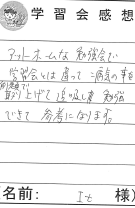 学習会感想
アットホームな勉強会で
学習会とは違って、病気の事を
個別で取り上げて追求し事勉強
できて 参考になります。
名前: 様